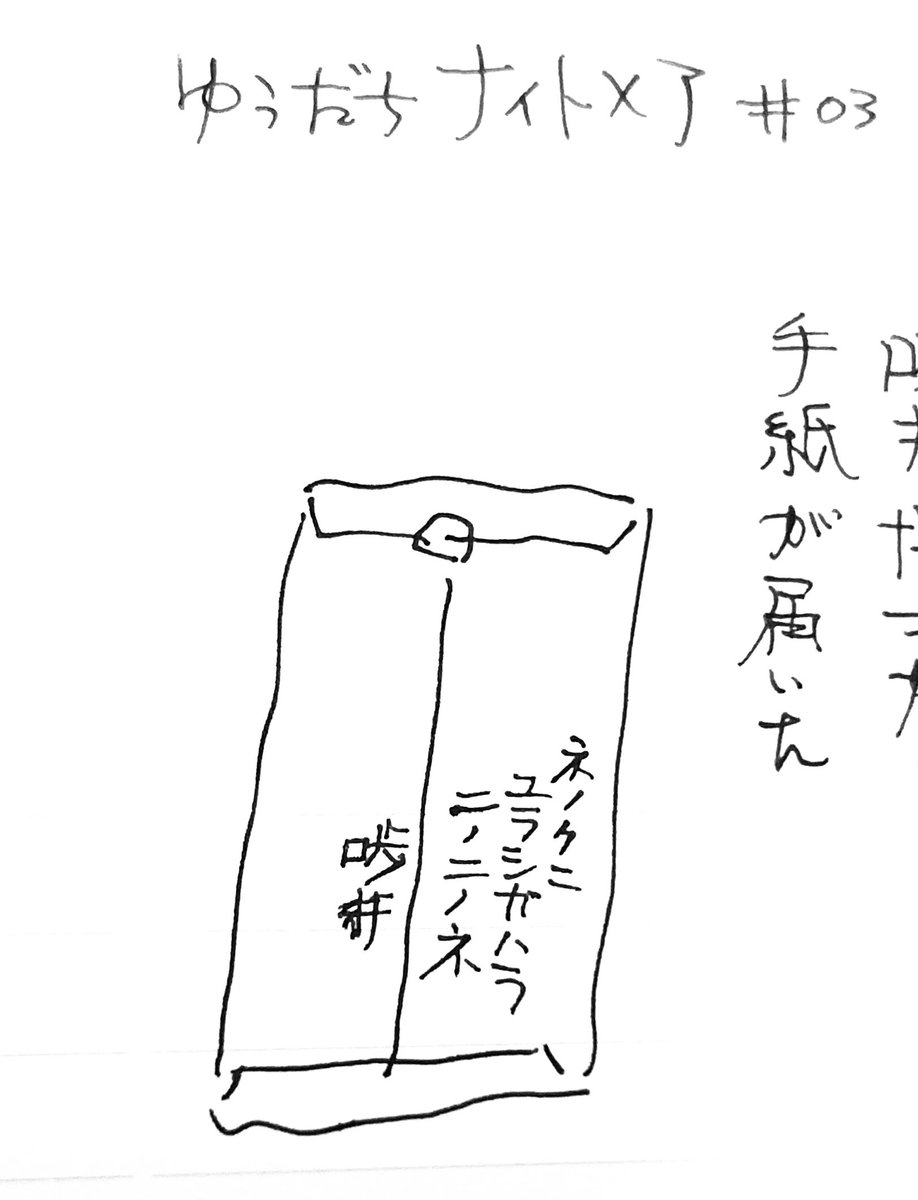 ゆうだちナイトメア #03
手紙が届いた
ネノクニ
ユラシガハラ
ニノニノネ